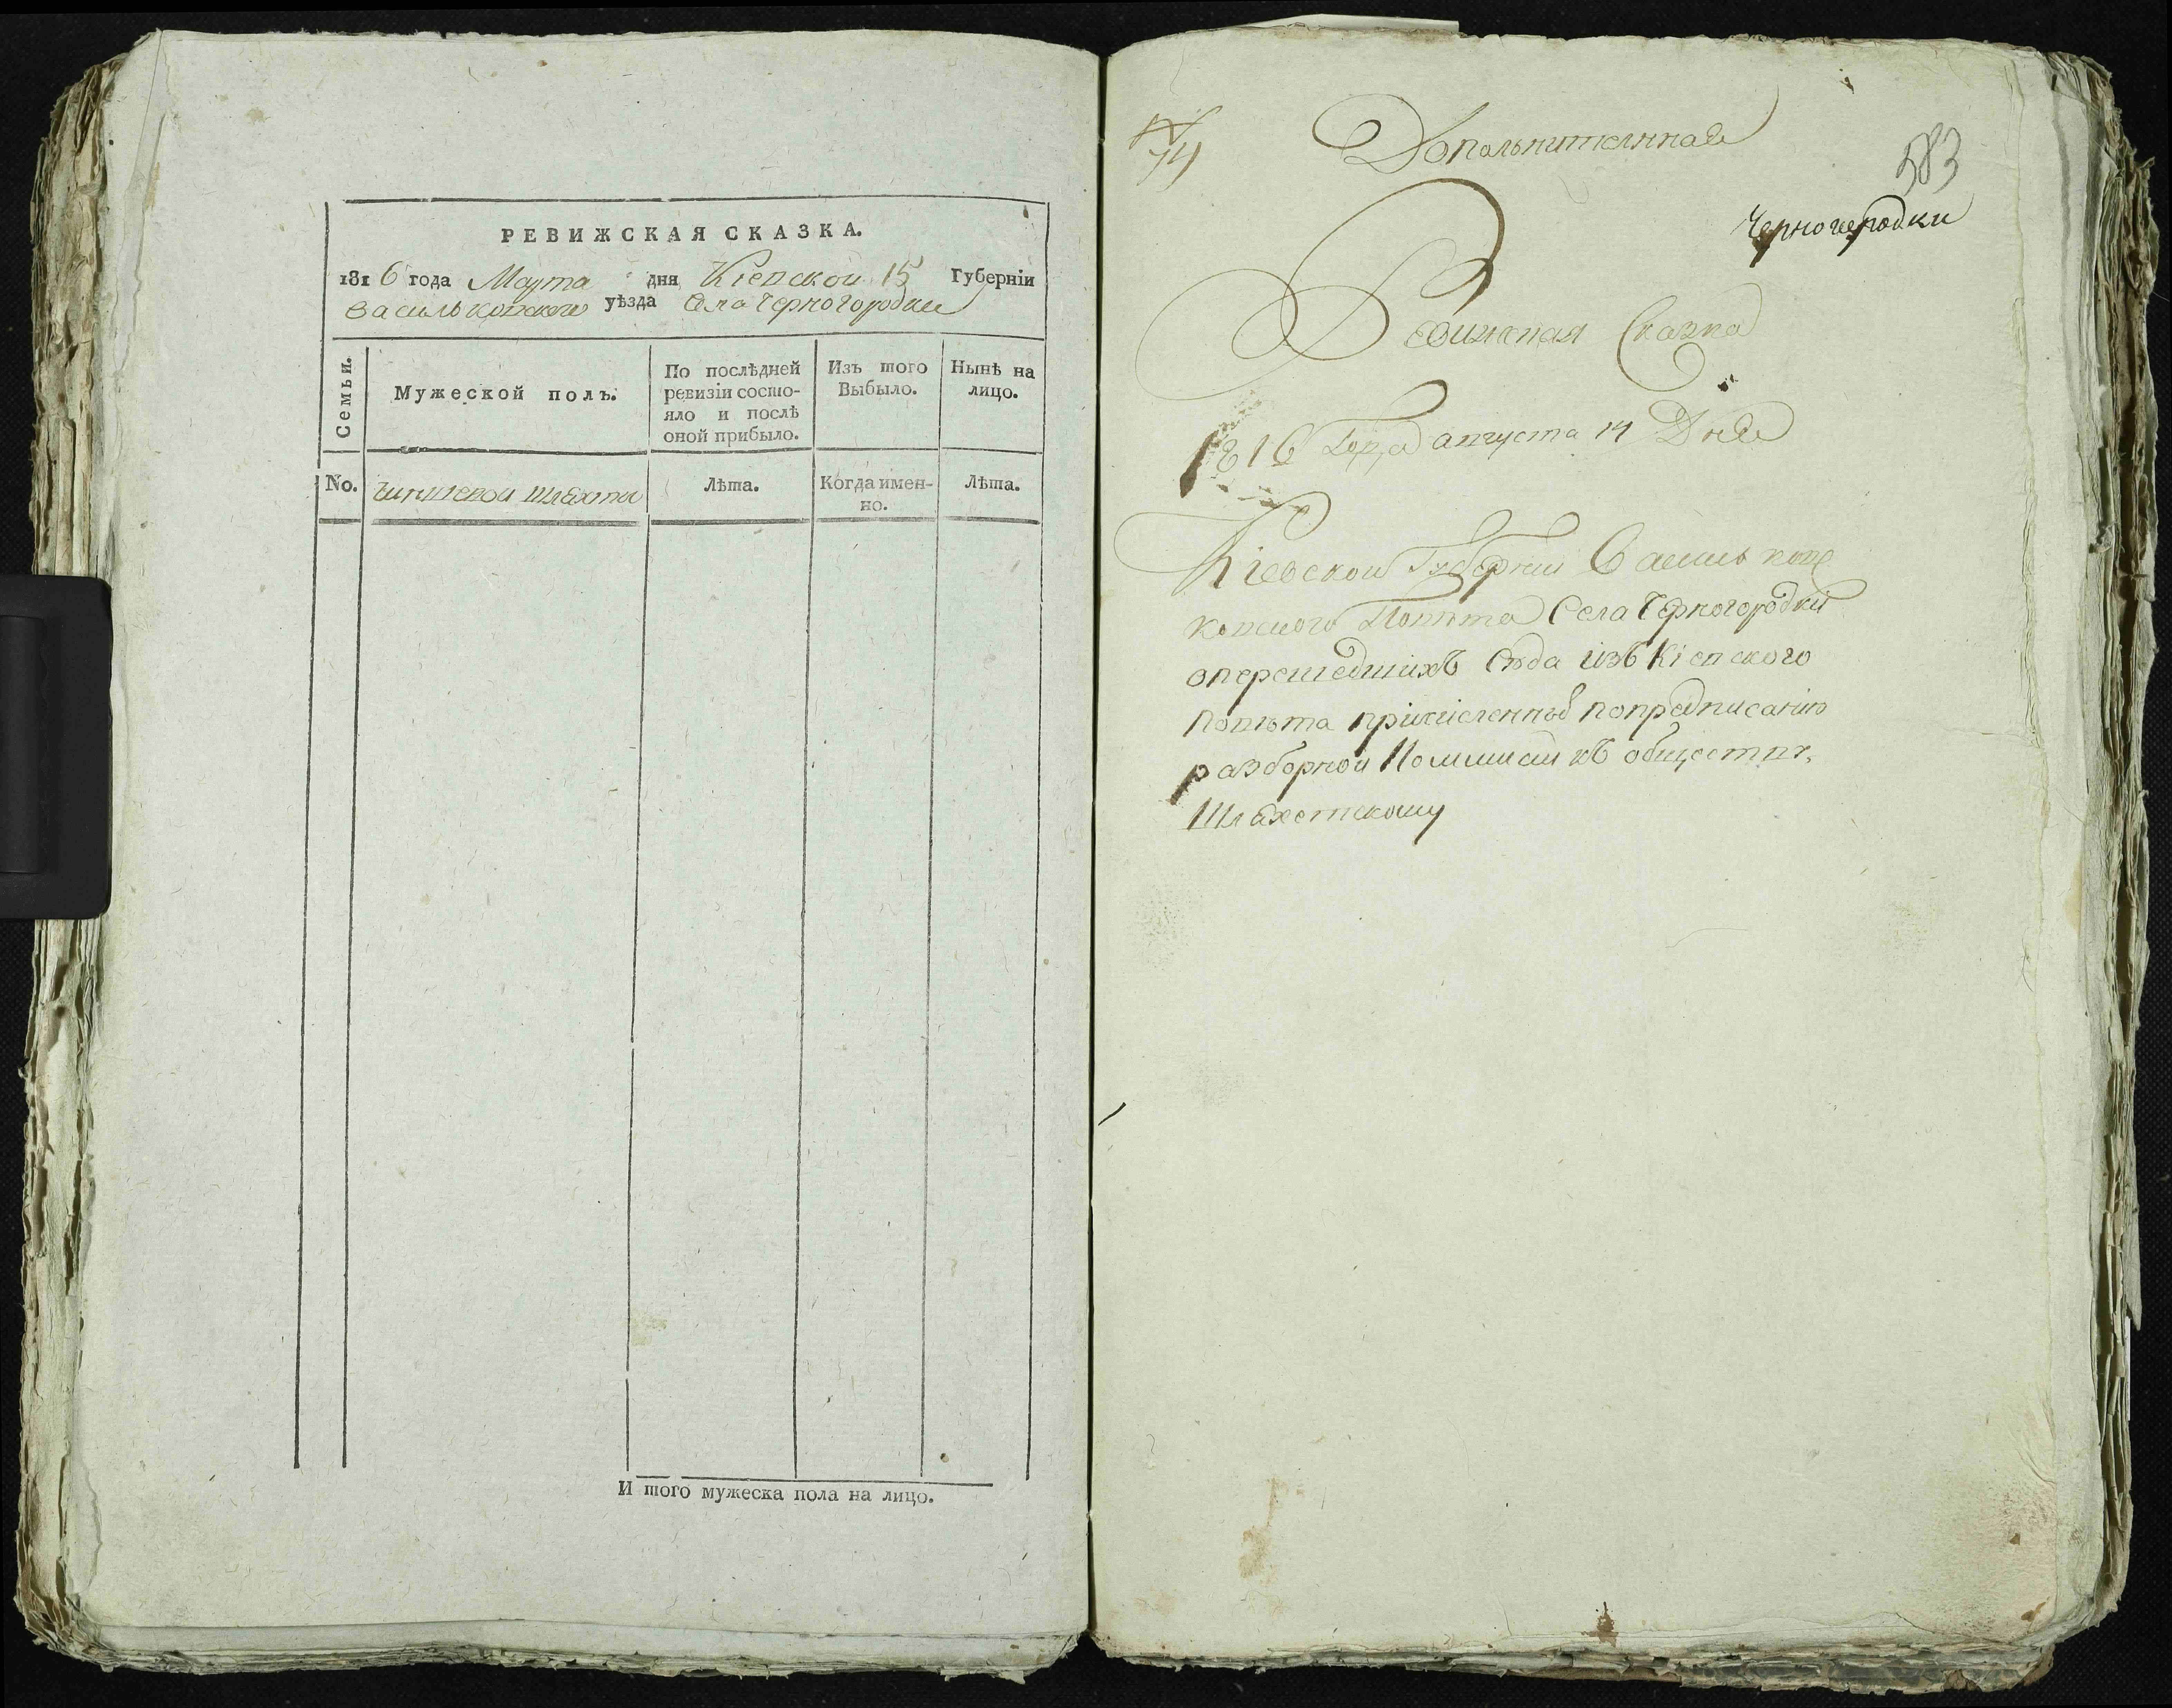 РЕВИЖСКАЯ СКАЗКА.
1816 года Марта дня Кіевской 15 Губерніи
Васильковского уѣзда Села Черногородки
Семьи.
Мужеской полъ.
По послѣдней
ревизіи состо-
яло и послѣ
оной прибыло.
Изъ того
Выбыло.
Нынѣ на
лицо.
No.
Чиншевой шляхты
Лѣта.
Когда имен-
но.
Лѣта.
И того мужеска пола на лицо.
Допольнителнная
583
Черногородки
Ревижская Сказка
1816 Года августа 14 Дня
Кіевской Губерніи Василь
ковского Повѣта Села Черногородки
оперешедшихъ Сюда изъ Кіевского
Повѣта причисленныхъ попредписанію
разборной Коммисіи къ обществу
Шляхетскому